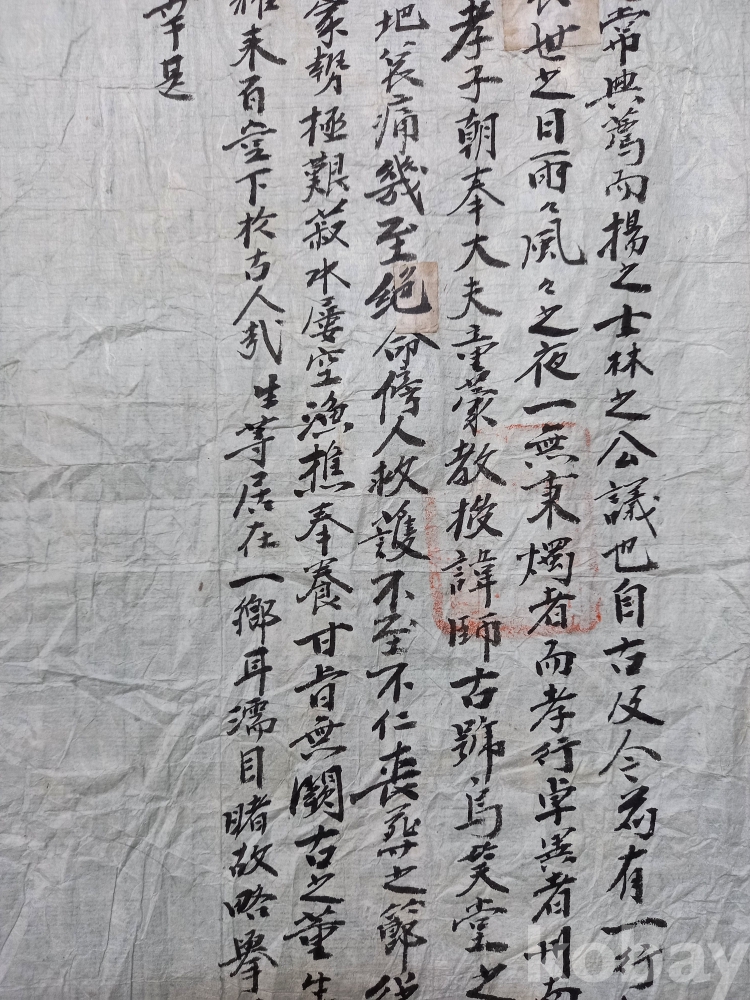 常典薦而揚之士林之公議也自古及今苟有一行
世之日雨々風々之夜一無秉燭者而孝行卓異者
孝子朝奉大夫童蒙教授諱師古號烏 堂之
地 痛幾至絶命傍人救護不至不仁喪葬之節
家勢極艱菽水屢空漁樵奉養甘旨無闕古之董生
来百 下於古人哉 生等居在一鄕耳濡目睹故略擧
幸甚
kobay